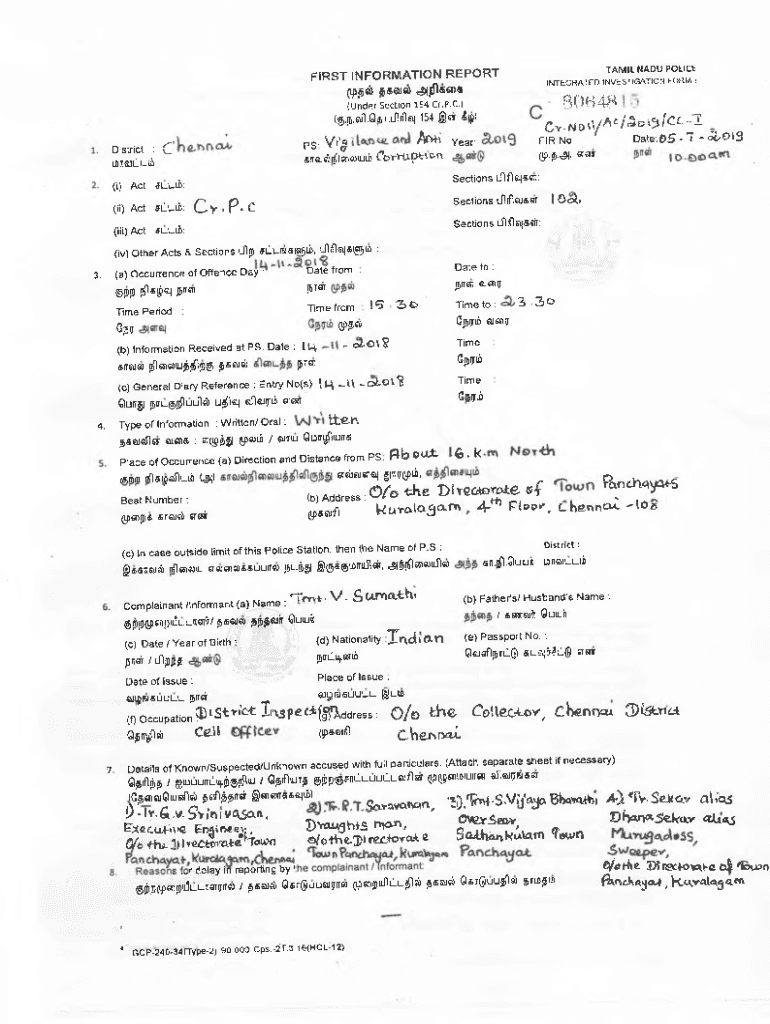 TAMIL NADU POLICE
INTEGRATED INVESTIGATION FORM :
FIRST INFORMATION REPORT
முதல் தகவல் அறிக்கை
(Under Section 154 Cr.P.C.)
(கு.ந.வி.தொ.பிரிவு 154 இன் கீழ்)
C 8064815
Cr.No11/AC/2019/CC-I
1. District : Chennai PS: Vigilance and Anti Year 2019 FIR No Date: 05-7-2019
மாவட்டம் காவல்நிலையம் Corruption ஆண்டு மு.த.அ. எண் நாள் 10.00am
2. (i) Act சட்டம்: Sections பிரிவுகள்:
(ii) Act சட்டம்: Cr.P.C Sections பிரிவுகள் 102.
(iii) Act சட்டம்: Sections பிரிவுகள்:
(iv) Other Acts & Sections பிற சட்டங்களும், பிரிவுகளும் :
3. (a) Occurrence of Offence Day : 14-11-2018 Date from : Date to :
குற்ற நிகழ்வு நாள் நாள் முதல் நாள் வரை
Time Period : Time from : 15.30 Time to : 23.30
நேர அளவு நேரம் முதல் நேரம் வரை
(b) Information Received at PS. Date : 14-11-2018 Time :
காவல் நிலையத்திற்கு தகவல் கிடைத்த நாள் நேரம்
(c) General Diary Reference : Entry No(s) 14-11-2018 Time :
பொது நாட்குறிப்பில் பதிவு விவரம் எண் நேரம்
4. Type of Information : Written/ Oral : Written
தகவலின் வகை : எழுத்து மூலம் / வாய் மொழியாக
5. Place of Occurrence (a) Direction and Distance from PS: About 16.k.m North
குற்ற நிகழ்விடம் (அ) காவல்நிலையத்திலிருந்து எவ்வளவு தூரமும், எத்திசையும்
Beat Number : (b) Address : O/o the Directorate of Town Panchayats
முறைக் காவல் எண் முகவரி Kuralagam, 4th Floor, Chennai -108
(c) In case outside limit of this Police Station, then the Name of P.S : District :
இக்காவல் நிலைய எல்லைக்கப்பால் நடந்து இருக்குமாயின், அந்நிலையில் அந்த கா.நி.பெயர் மாவட்டம்
6. Complainant /Informant (a) Name : Tmt. V. Sumathi (b) Father's/ Husband's Name :
குற்றமுறையீட்டாளர்/ தகவல் தந்தவர் பெயர் தந்தை / கணவர் பெயர்
(c) Date / Year of Birth : (d) Nationality : Indian (e) Passport No. :
நாள் / பிறந்த ஆண்டு நாட்டினம் வெளிநாட்டு கடவுச்சீட்டு எண்
Date of issue : Place of Issue :
வழங்கப்பட்ட நாள் வழங்கப்பட்ட இடம்
(f) Occupation District Inspection (g) Address : O/o the Collector, Chennai District
தொழில் Cell Officer முகவரி Chennai
7. Details of Known/Suspected/Unknown accused with full particulers. (Attach separate sheet if necessary)
தெரிந்த / ஐயப்பாட்டிற்குரிய / தெரியாத குற்றஞ்சாட்டப்பட்டவரின் முழுமையான விவரங்கள்
(தேவையெனில் தனித்தாள் இணைக்கவும்)
1). Tr.G.V. Srinivasan, 2). Tr.R.T. Saravanan, 3). Tmt.S.Vijaya Bharathi 4). Tr. Sekar alias
Executive Engineer, Draughts man, Oversear, Dhana Sekar alias
O/o the Directorate Town O/o the Directorate Sathankulam Town Murugadoss,
Panchayat, Kuralagam, Chennai Town Panchayat, Kuralagam Panchayat Sweeper,
O/o the Directorate of Town
8. Reasons for delay in reporting by the complainant / Informant: Panchayat, Kuralagam
குற்றமுறையீட்டாளரால் / தகவல் கொடுப்பவரால் முறையிட்டதில் தகவல் கொடுப்பதில் தாமதம்
—
* GCP-240-34(Type-2) 90 000 Cps.-21.3 16(HCL-12)